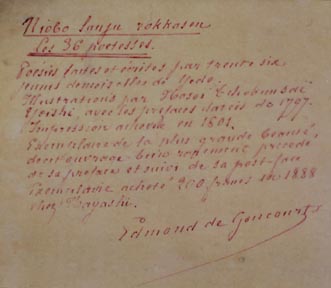 Niobo Sanju rokkasen
Les 36 poétesses.
Poésies faites et écrites par trente six
jeunes demoiselles de Yedo.
Illustrations par Hosoi Tchobunsai
Yeishi, avec les préfaces datées de 1797.
Impression achevée en 1801.
Exemplaire de la plus grande beauté,
de cet ouvrage très rarement précédé
de sa préface et suivi de sa post-face
Exemplaire acheté 200 francs en 1888
chez Hayashi.
Edmond de Goncourt